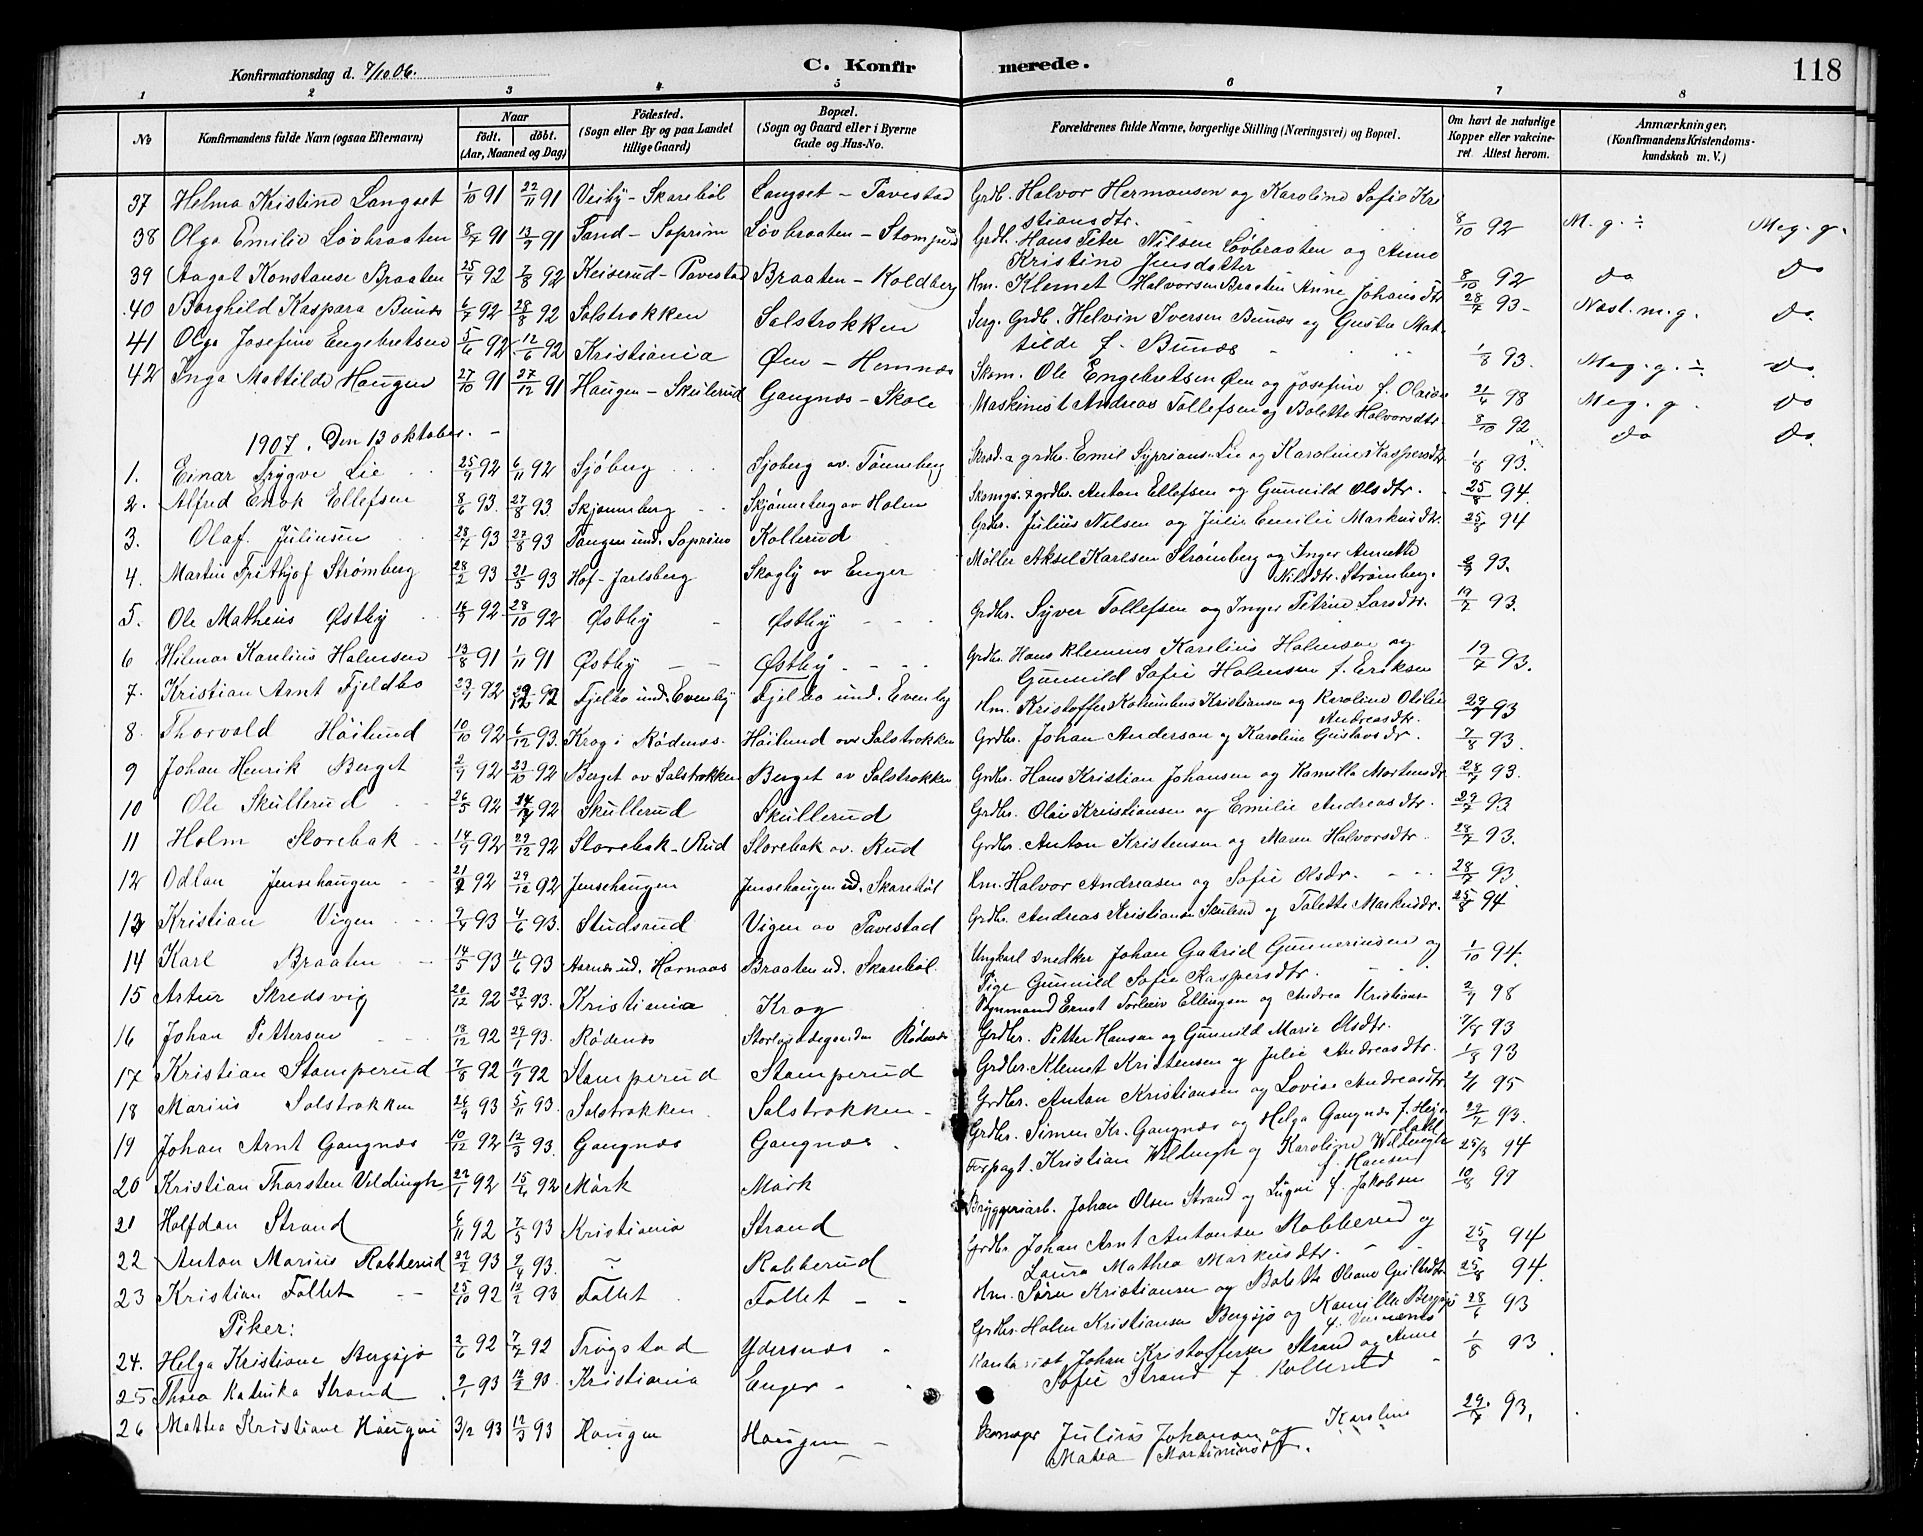 Konfirmationsdag d. 7/10 06.
C. Konfir merede.
118
1 2 3 4 5 6 7 8
No
Konfirmandens fulde Navn (ogsaa Efternavn)
Naar
født. døbt.
(Aar, Maaned og Dag)
Födested.
(Sogn eller By og paa Landet
tillige Gaard)
Bopæl.
(Sogn og Gaard eller i Byerne
Gade og Hus-No.
Forældrenes fulde Navne, borgerlige Stilling (Næringsvei) og Bopæl.
Om havt de naturlige
Kopper eller vakcine-
ret. Attest herom.
Anmærkninger.
(Konfirmandens Kristendoms-
kundskab m. V.)
37 Helma Kristine Langset 1/10 91 22/11 91 Veiby - Skarebøl Langset - Tavestad Grdb. Halvor Hermansen og Karoline Sofie Kri
stiansdtr. 8/10 92 M. g. ÷ Meg. g.
38 Olga Emilie Løvbraaten 8/7 91 13/9 91 Sand - Soprim Løvbraaten - Stomperud Grdb. Hans Peter Nilsen Løvbraaten og Anne
Kristine Jensdatter 8/10 92 do do
39 Aagot Konstanse Braaten 25/4 92 7/8 92 Keiserud - Tavestad Braaten - Koldberg Hm. Klemet Halvorsen Braaten Anne Johansdtr 28/7 93 - Nast. m. g. do.
40 Borghild Kaspara Bunæs 6/7 92 28/8 92 Solstrøkken Solstrokken Serg. Grdb. Helvin Iversen Bunæs og Gusta Mat-
tilde f. Bunæs 1/8 93. Meg. g. ÷ do.
41 Olga Josefine Engebretsen 5/6 92 12/6 92 Kristiania Øen - Hemnæs Skom. Ole Engebretsen Øen og Josefine f. Olsen 21/4 98 Meg. g. do
42 Inga Mattilde Haugen 27/10 91 27/12 91 Haugen - Skullerud Gangnæs - Skole Maskinist Andreas Tollefsen og Bolette Halvorsdtr. 8/10 92 do do.
1907. Den 13 oktober. -
1. Einar Trygve Lie 25/9 92 6/11 92 Sjøberg Sjøberg av Tønneberg Skræd. a grdbr. Emil Syprians. Lie og Karoline Kaspersdtr. 1/8 93.
2. Alfred Enok Ellefsen 8/6 93. 27/8 93. Skjønneberg Skjønneberg av Holm Skomgr. & grdbr. Anton Ellefsen og Gunnild Olsdtr. 25/8 94.
3. Olaf Juliusen 28/7 93 27/8 93 Tangen und. Soprim Kollerud Grdbr. Julius Nilsen og Julie Emilie Markusdtr. 25/8 94
4. Martin Frithjof Strømberg 28/2 93 21/5 93 Hof - Jarlsberg Skogly av Enger Møller Aksel Karlsen Strømberg og Inger Annette
Nilsdtr. Strømberg. 93.
5. Ole Matheus Østby 16/9 92 28/10 92 Østby Østby Grdbr. Syver Tollefsen og Inger Petrine Larsdtr. 19/7 93.
6 Hilmar Karelius Halmsen 13/8 91 1/11 91 Østby Østby Grdbr. Hans Klemens Karelius Halmsen og
Gunnild Sofie Holmsen f. Eriksen 19/7 93.
7. Kristian Arnt Fjeldbo 23/9 92 92 Fjelbo und. Evenby Fjelbo und. Evenby Hm. Kristoffer Kolumbus Kristiansen og Karoline Otilie
Andreasdtr. 29/7 93
8. Thorvald Høilund 10/10 92 6/12 93. Krog i Rødenæs. Høilund av Solstrøkken Grdbr. Johan Anderson og Karoline Gustavsdtr. 7/8 93.
9 Johan Henrik Berget 2/9 92 23/10 92 Berget av Solstrøkken Berget av Solstrøkken Grdbr. Hans Kristian Johansen og Kamilla Mortensdtr 28/7 93.
10 Ole Skullerud 26/5 92 92 Skullerud Skullerud Grdbr. Olai Kristiansen og Emilie Andreasdtr. 29/7 93
11 Holm Storebak 14/9 92 29/12 92 Storebak - Rud Storebak av. Rud Grdbr. Anton Kristensen og Maren Halvorsdtr. 28/7 93.
12 Odlau Jensehaugen 92 29/12 92 Jensehaugen Jensehaugen ud. Skarebøl Hm. Halvor Andreasen og Sofie Olsdtr. 28/7 93.
13 Kristian Vigen 2/4 93 4/6 93. Studsrud Vigen av Tavestad Grdbr. Andreas Kristiansen Skulerud og Talette Markusdtr. 25/8 94
14 Karl Braaten 14/5 93 11/6 93 Aarnes ud. Hornaas Braaten ud. Skarebøl Ungkarl snedker Johan Gabriel Gunneriusen og
Pige Gunnild Sofie Kaspersdtr. 1/10 94.
15 Artur Skredsvig 20/12 92 23/4 93. Kristiania Krog Bymand Ernst Torleiv Ellingsen og Andrea Kristians- 2/9 98
16 Johan Pettersen 18/12 92 29/1 93. Rødenæs Rødenæs Grdbr. Petter Hansen og Gunnild Marie Olsdtr. 93
17 Kristian Stomperud 7/8 92 11/9 92 Stomperud Stomperud Grdbr. Klemet Kristensen og Julie Andreasdtr. 1/8 93
18 Marius Solstrøkken 26/9 93 5/11 93. Solstrøkken. Solstrøkken Grdbr. Anton Kristiansen og Lovise Andreasdtr 95
19 Johan Arnt Gangnæs 10/12 92 12/3 93. Gangnæs Gangnæs Grdbr. Simen Kr. Gangnæs og Helga Gangnæs f. 29/7 93.
20 Kristian Thorsten Vildingh 22/1 92 15/4 92 Mørk Mørk Forpagt. Kristian Wildingh og Karoline Wildingh
f. Hansen 25/8 94
21 Halfdan Strand 6/11 92 7/5 93 Kristiania Strand Bryggeriarb. Johan Olsen Strand og f. Jakobsen 10/8 99
22 Anton Marius Robberud 22/2 93 9/4 93. " Robberud Grdbr Johan Arnt Antonsen Robberud og
Laura Mathea Markusdtr. 25/8 94
23 Kristian Follet 25/10 92 12/2 93 Follet Follet Hm. Søren Kristiansen og Bolette Oleane 25/8 94.
Piker:
24. Helga Kristiane Bergsjø 2/6 92 7/7 92 Trøgstad Ydersnæs Grdbr. Holm Kristiansen Bergsjø og Kamilla Bergsjø
28/6 93
25 Thora Katinka Strand 2/1 93 12/2 93. Kristiania Enger Johan Kristoffersen Strand og Anne
Sofie Strand f. Kollerud 1/8 93.
26 Mattea Kristiane Haugen 3/2 93 12/3 93 Haugen Haugen Julius Johansen og Karoline
Matea Martiniusdtr. 29/7 93.